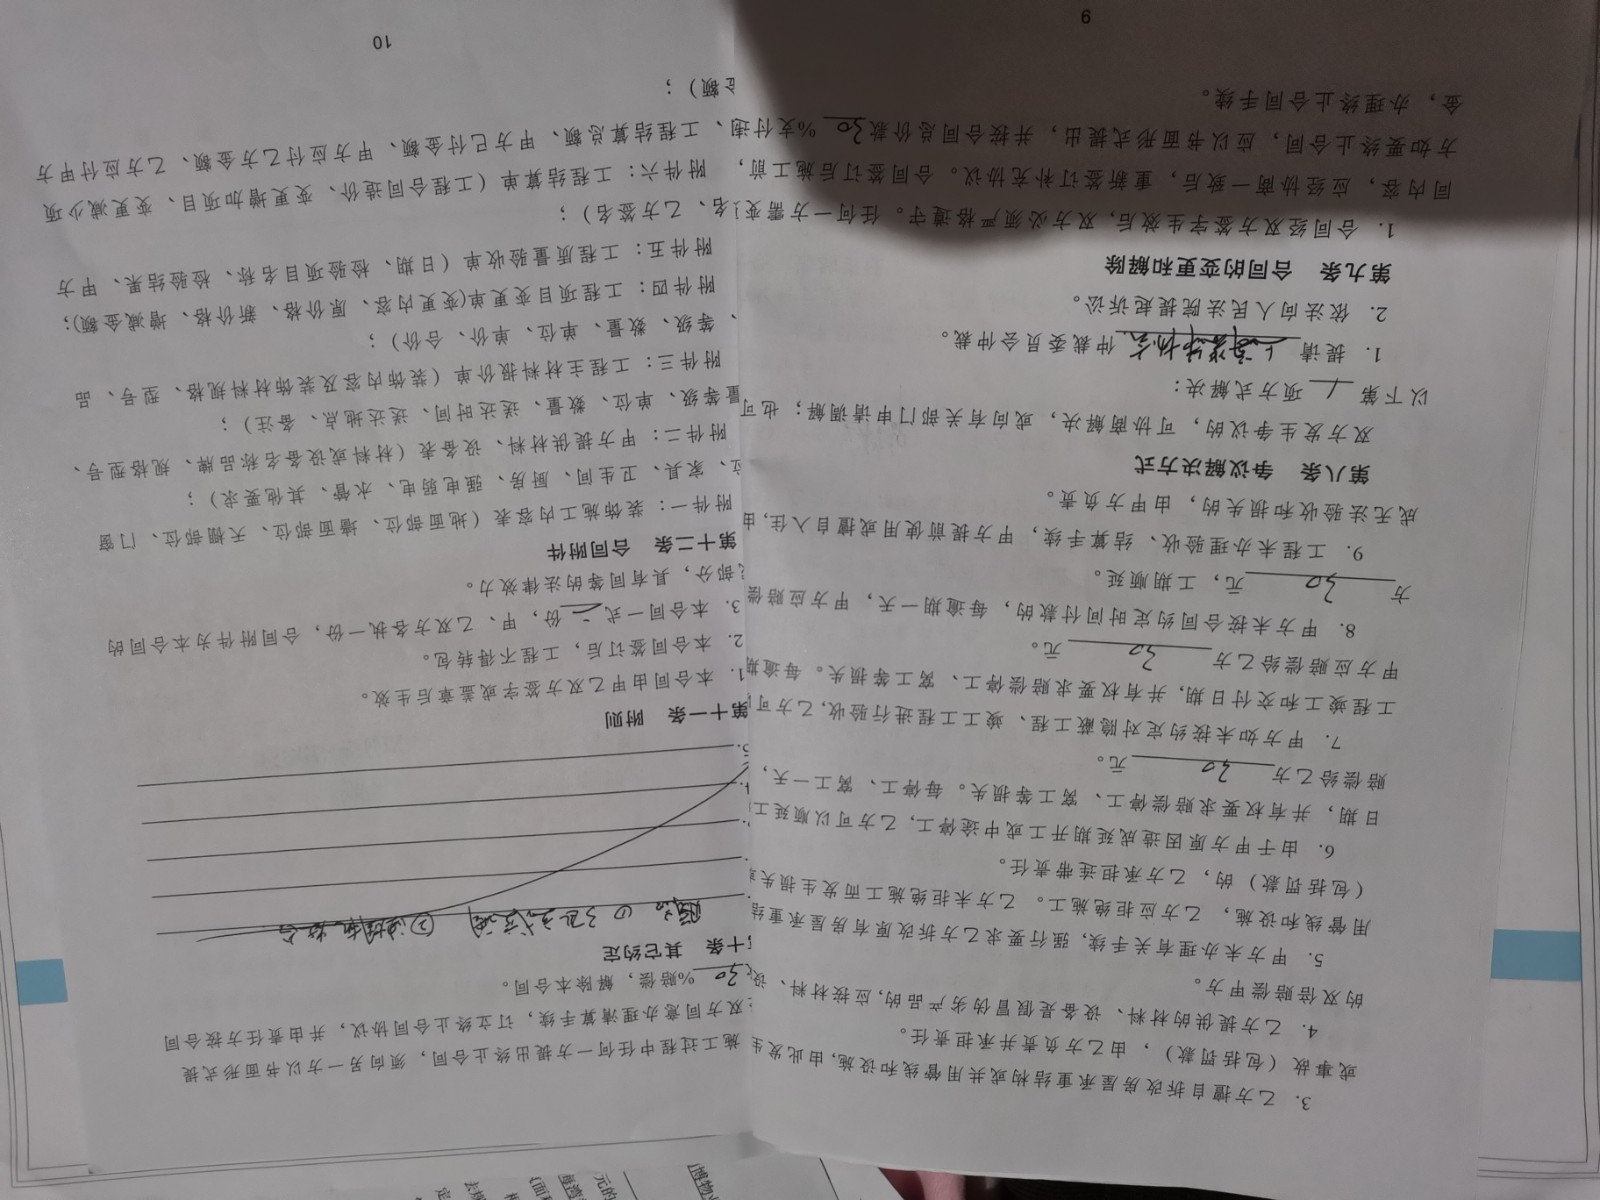 3. 乙方擅自拆改房屋承重结构或共用管线和设施,由此发生
或事故(包括罚款),由乙方负责并承担责任。
4. 乙方提供的材料、设备是假冒伪劣产品的,应按材料、设
的双倍赔偿甲方。
5. 甲方未办理有关手续,强行要求乙方拆改原有房屋承重结
用管线和设施,乙方应拒绝施工。乙方未拒绝施工而发生损失
(包括罚款)的,乙方承担连带责任。
6. 由于甲方原因造成延期开工或中途停工,乙方可以顺延工
日期,并有权要求赔偿停工、窝工等损失。每停工、窝工一天,
赔偿给乙方 30 元。
7. 甲方如未按约定对隐蔽工程、竣工工程进行验收,乙方可
工程竣工和交付日期,并有权要求赔偿停工、窝工等损失。每逾期
甲方应赔偿给乙方 30 元。
8. 甲方未按合同约定时间付款的,每逾期一天,甲方应赔偿
方 30 元,工期顺延。
9. 工程未办理验收、结算手续,甲方提前使用或擅自入住,由
成无法验收和损失的,由甲方负责。
第八条 争议解决方式
双方发生争议的,可协商解决,或向有关部门申请调解;也可
以下第 1 项方式解决:
1. 提请 仲裁委员会仲裁。
2. 依法向人民法院提起诉讼。
第九条 合同的变更和解除
1. 合同经双方签字生效后,双方必须严格遵守。任何一方需变
同内容,应经协商一致后,重新签订补充协议。合同签订后施工前,
方如要终止合同,应以书面形式提出,并按合同总价款 30 %支付违
金,办理终止合同手续。
9
施工过程中任何一方提出终止合同,须向另一方以书面形式提
双方同意办理清算手续,订立终止合同协议,并由责任方按合同
30 %赔偿,解除本合同。
十条 其它约定
① ②
5.
第十一条 附则
1. 本合同由甲乙双方签字或盖章后生效。
2. 本合同签订后,工程不得转包。
3. 本合同一式 二 份,甲、乙双方各执一份,合同附件为本合同的
部分,具有同等的法律效力。
第十二条 合同附件
附件一:装饰施工内容表(地面部位、墙面部位、天棚部位、门窗
位、家具、卫生间、厨房、强电弱电、水管、其他要求);
附件二:甲方提供材料、设备表(材料或设备名称品牌、规格型号、
量等级、单位、数量、送达时间、送达地点、备注);
附件三:工程主材料报价单(装饰内容及装饰材料规格、型号、品
、等级、数量、单位、单价、合价);
附件四:工程项目变更单(变更内容、原价格、新价格、增减金额);
附件五:工程质量验收单(日期、检验项目名称、检验结果、甲方
名、乙方签名);
附件六:工程结算单(工程合同造价、变更增加项目、变更减少项
、工程结算总额、甲方已付金额、甲方应付乙方金额、乙方应付甲方
金额);
10